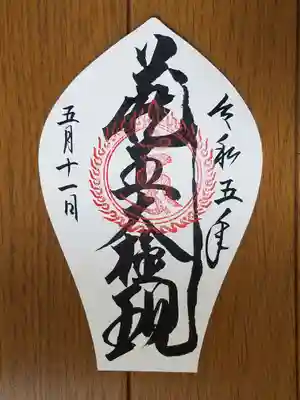 令和五年
蔵王大権現
五月十一日